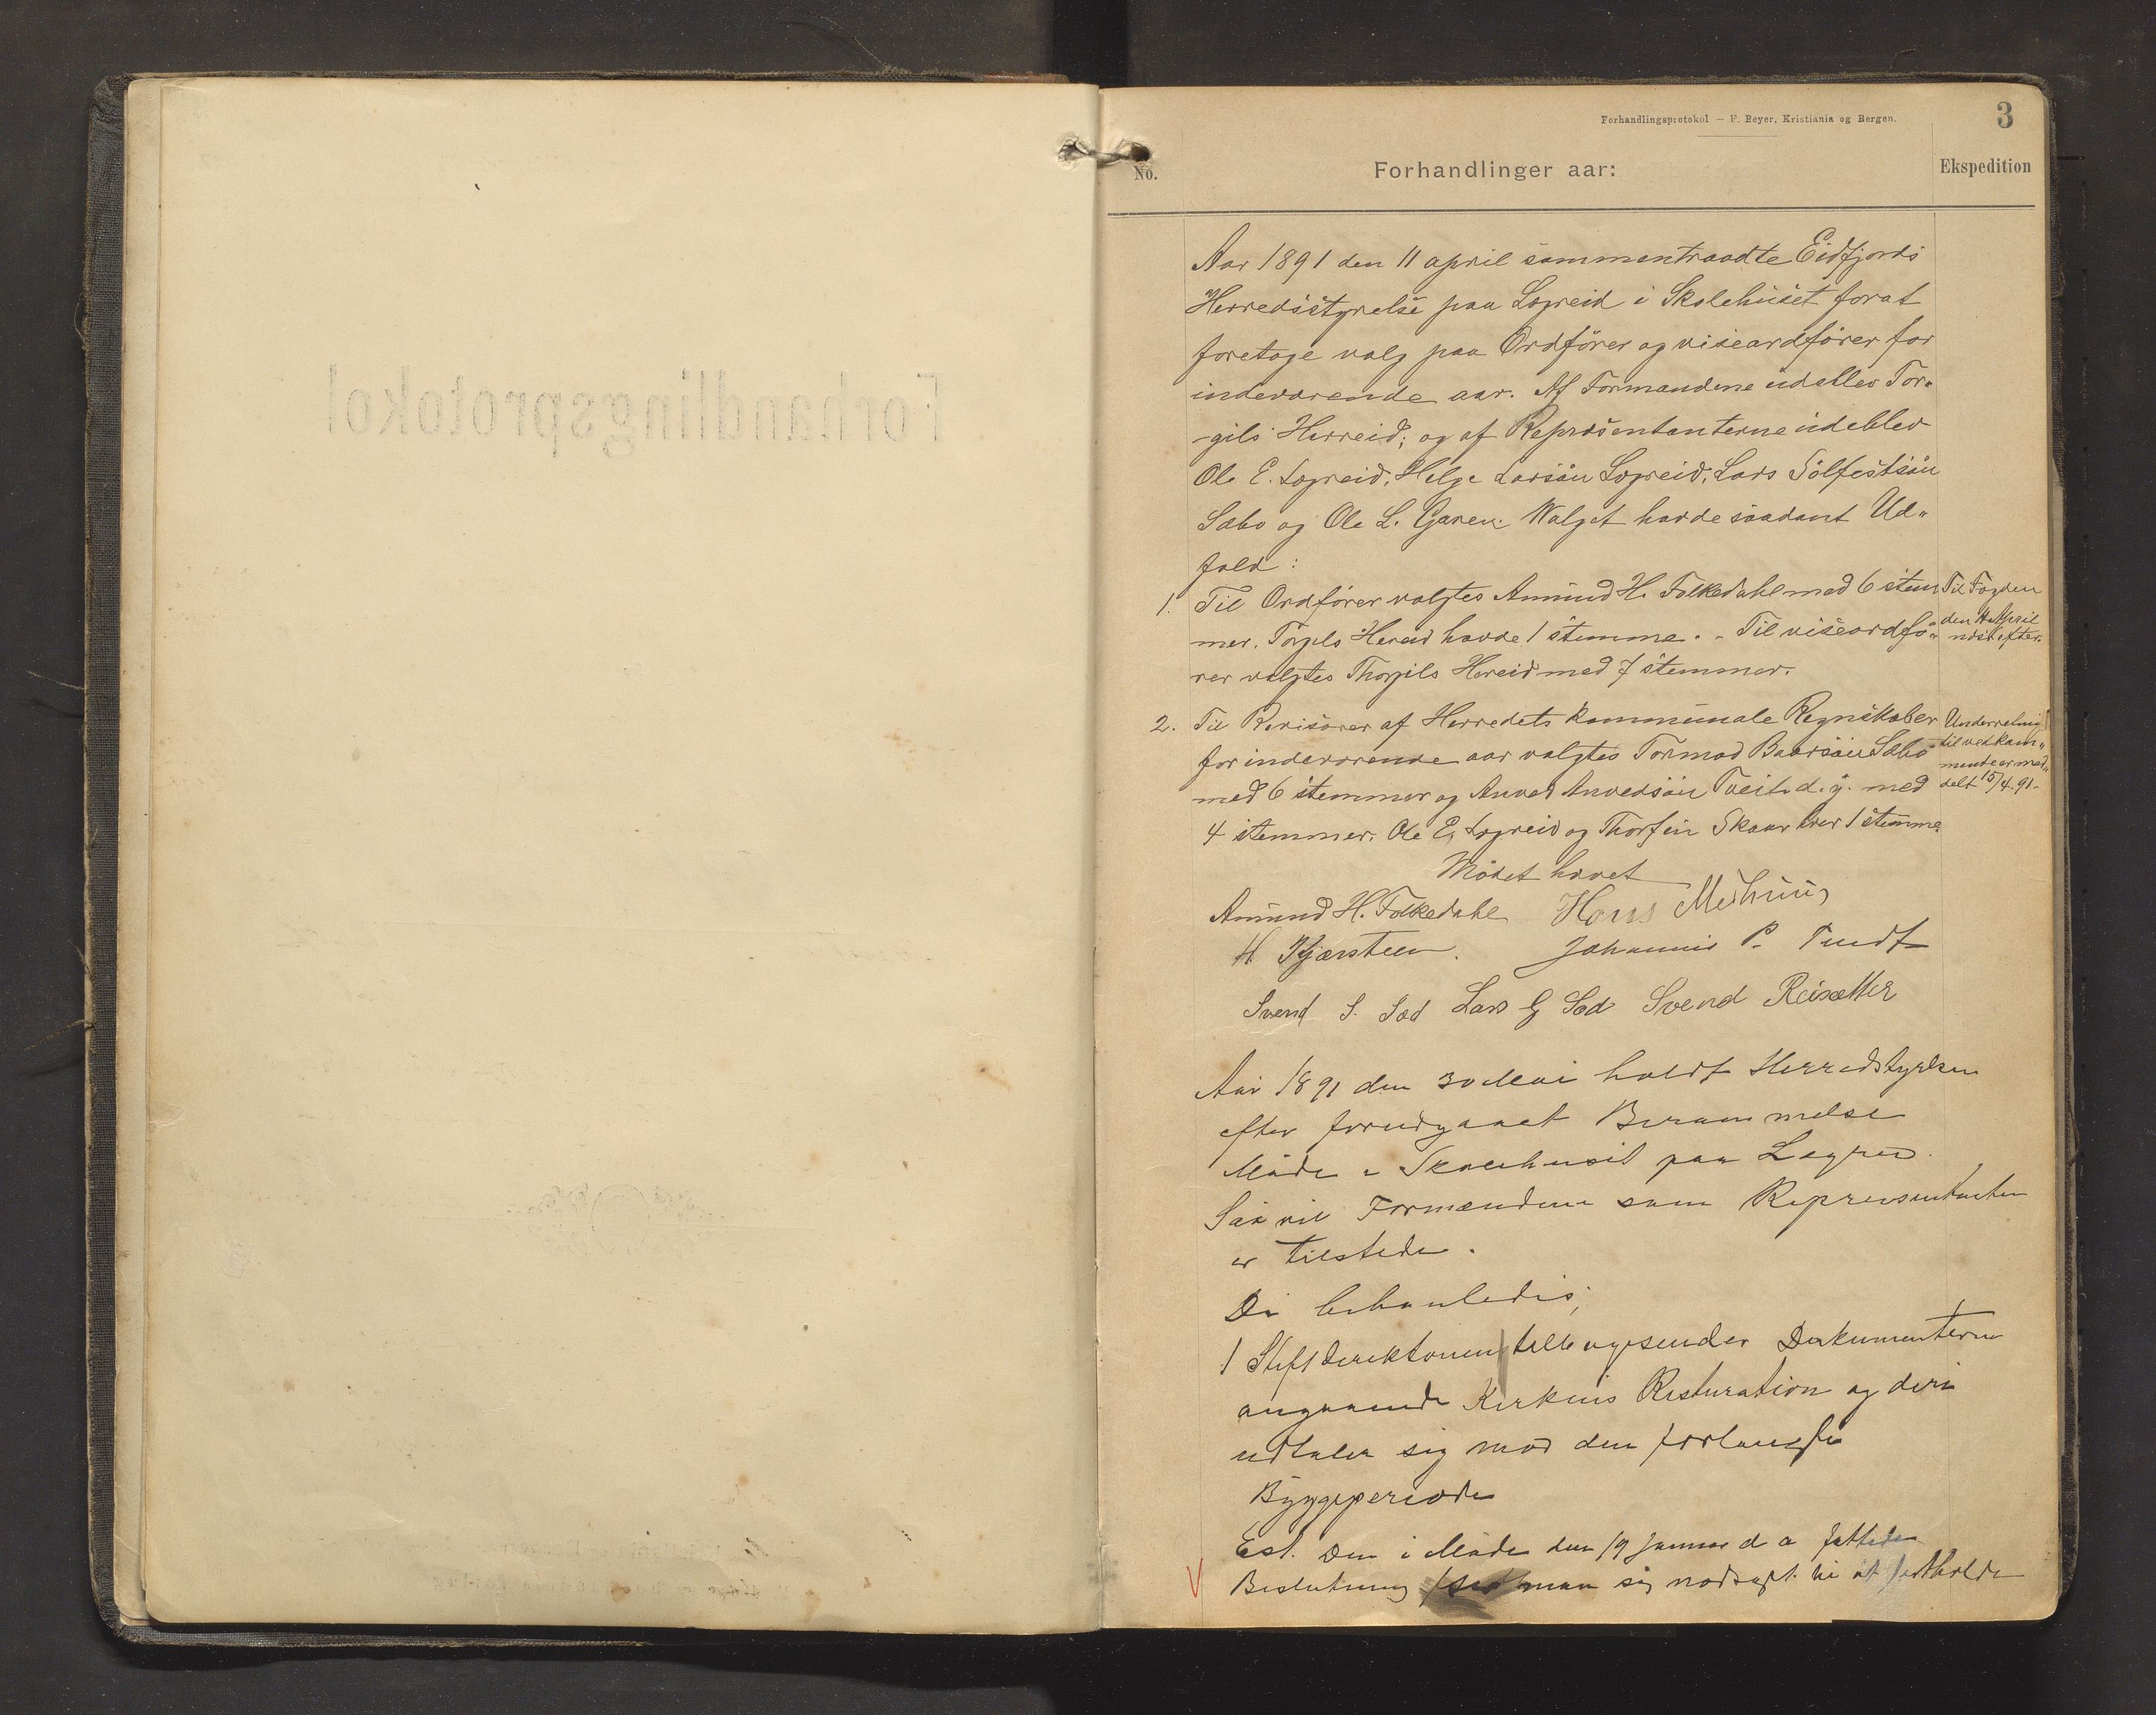 Forhandlingsprotokol
Forhandlingsprotokol — F. Beyer, Kristiania og Bergen.
3
No.
Forhandlinger aar:
Ekspedition
Aar 1891 den 11 april sammentraadte Eidfjords
Herredsstyrelse paa Legreid i Skolehuset forat
foretage valg paa Ordfører og viseordfører for
indeværende aar. Af Formændene udeblev Tor-
-gils Herreid; og af Repræsentanterne udeblev
Ole E. Legreid, Helge Larsøn Legreid, Lars Sølfestsøn
Sæbo og Ole L. Garen. Walget havde saadant Ud-
fald:
1. Til Ordfører valgtes Amund H. Folkedahl med 6 stem
mer. Torgils Hereid havde 1 stemme. - Til viseordfø-
rer valgtes Thorgils Hereid med 7 stemmer.
Til Fogden
den 14 April
næstefter.
2. Til Revisorer af Herredets kommunale Regnskaber
for indeværende aar valgtes Tormod Baarsøn Sæbo
med 6 stemmer og Anved Anvedsøn Tveit d. y. med
4 stemmer. Ole E. Legreid og Thorfin Skaar hver 1 stemme.
Underretning
til vedkom-
mende er med-
delt 15/4. 91.
Mødet hævet
Amund H. Folkedahl Hans Mæhuus
H Kjærsteen. Johannis P. Tundt
Svend S. Sæd Lars G Sæd Svend Reisæter
Aar 1891 den 30 Mai holdt Herredstyrelsen
efter forudgaaet Berammelse
Møde i Skolehuset paa Legreid.
Saavel Formændene som Repræsentanter
er tilstede.
Di behanledes;
1 Stiftdirektionen tilbagesender Dokumenterne
angaaende Kirkens Resturation og deri
udtaler sig mod den forlængede
Byggeperiode
Esl. Den i Møde den 19 Januar d a fattede
Beslutning ser man sig nødsaget til at fastholde